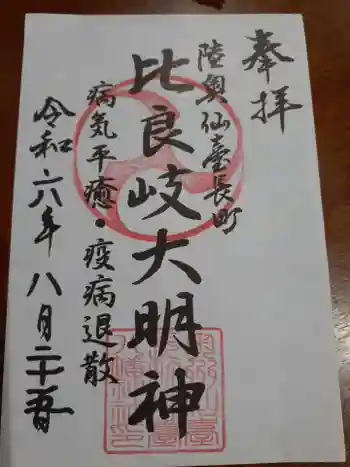 奉拝
陸奥仙臺長町
比良岐大明神
病気平癒・疫病退散
令和六年八月二十五日